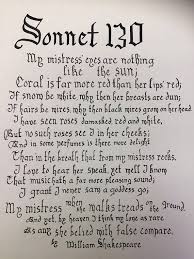 Sonnet 130
My mistress' eyes are nothing
like the sun;
Coral is far more red than her lips' red;
If snow be white, why then her breasts are dun;
If hairs be wires, black wires grow on her head.
I have seen roses damasked red and white,
But no such roses see I in her cheeks;
And in some perfumes is there more delight
Than in the breath that from my mistress reeks.
I love to hear her speak, yet well I know
That music hath a far more pleasing sound,
I grant I never saw a goddess go;
My mistress when she walks treads on the ground.
And yet, by heaven I think my love as rare
As any she belied with false compare.
by
William Shakespeare